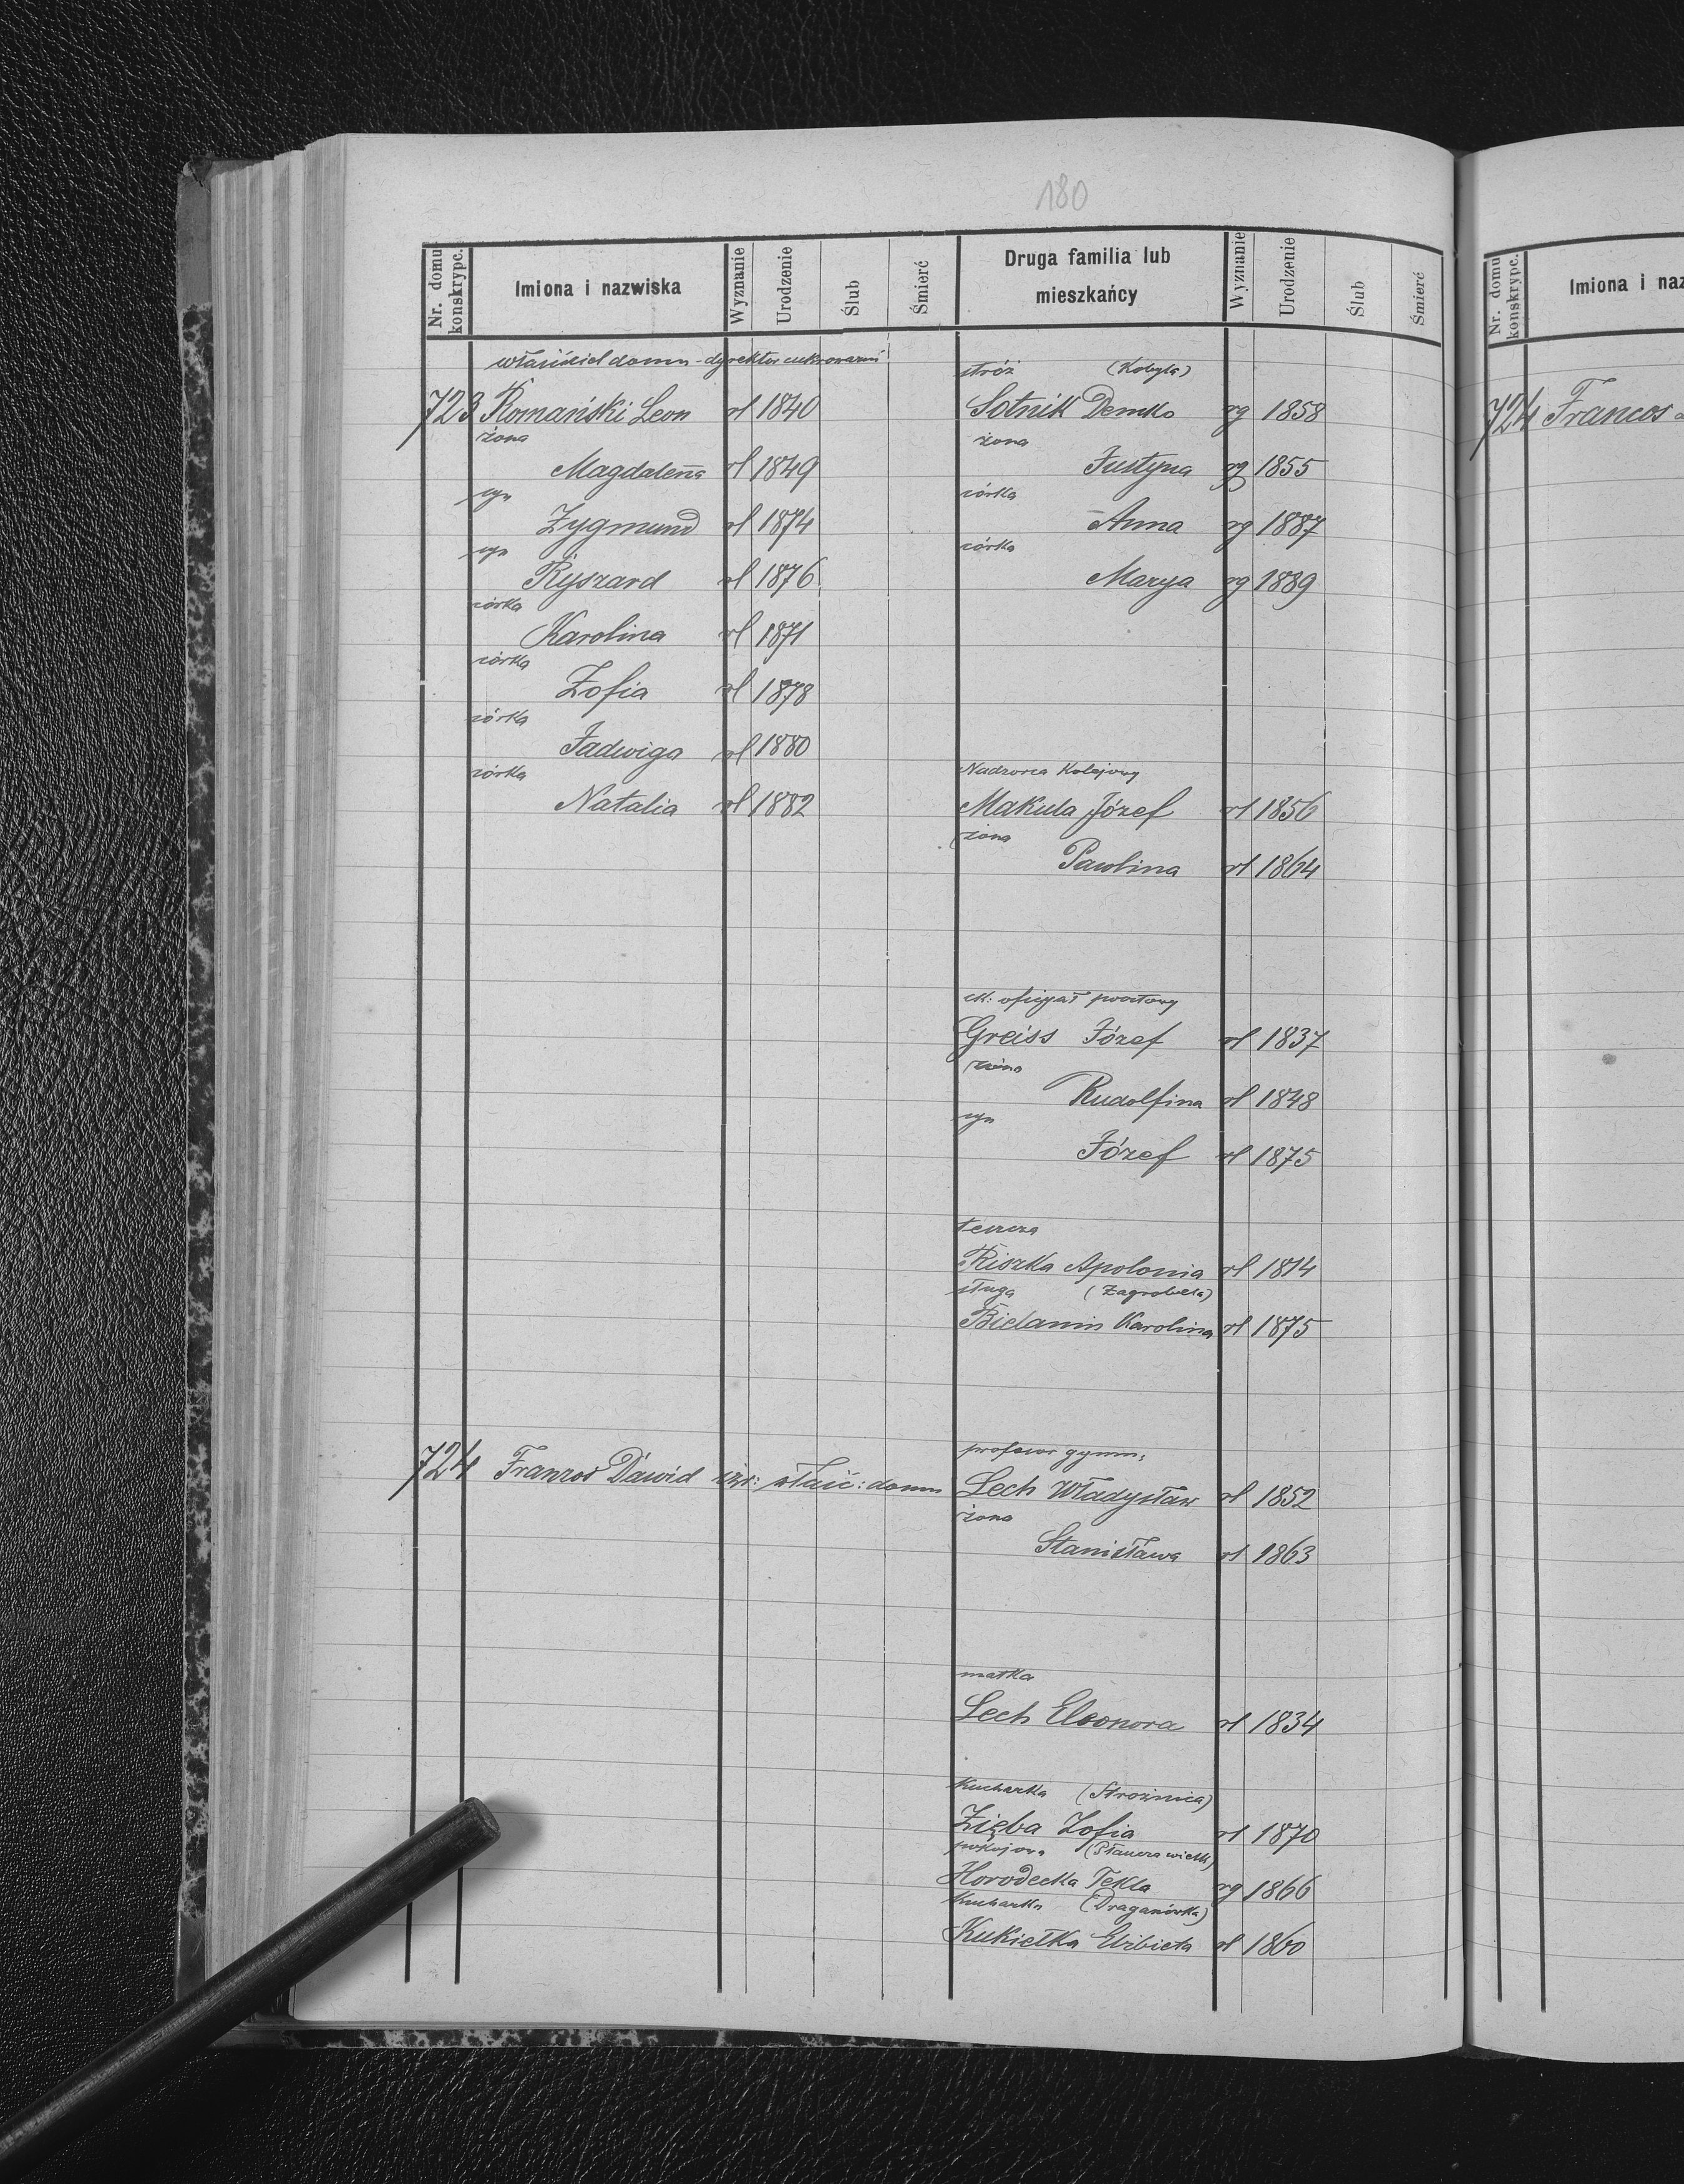 180
Nr. domu konskrypc.
Imiona i nazwiska
Wyznanie
Urodzenie
Ślub
Śmierć
Druga familia lub mieszkańcy
Wyznanie
Urodzenie
Ślub
Śmierć
właściciel domu - dyrektor cukrowarni
723 Romański Leon rl 1840
żona
Magdalena rl 1849
syn
Zygmund rl 1874
syn
Ryszard rl 1876
córka
Karolina rl 1871
córka
Zofia rl 1878
córka
Jadwiga rl 1880
córka
Natalia rl 1882
stróż (Kobyla)
Sotnik Demko rg 1858
żona
Justyna rg 1855
córka
Anna rg 1887
córka
Marya rg 1889
Nadzorca Kolejowy
Makula Józef rl 1856
żona
Paulina rl 1864
ck: oficyał pocztowy
Greiss Józef rl 1837
żona
Rudolfina rl 1848
syn
Józef rl 1875
Riszka Apolonia rl 1814
sługa (Zagrobela)
Bielanin Karolina rl 1875
724 Franzos Dawid izr: właść: domu
profesor gymn:
Lech Władysław rl 1852
żona
Stanisława rl 1863
matka
Lech Eleonora rl 1834
Kucharka (Strożnica)
Zięba Zofia rl 1870
pokojowa
Horodecka Tekla rg 1866
Kucharka (Draganówka)
Kukiełka Elżbieta rl 1860
Nr. domu konskrypc.
Imiona i naz
724 Francos